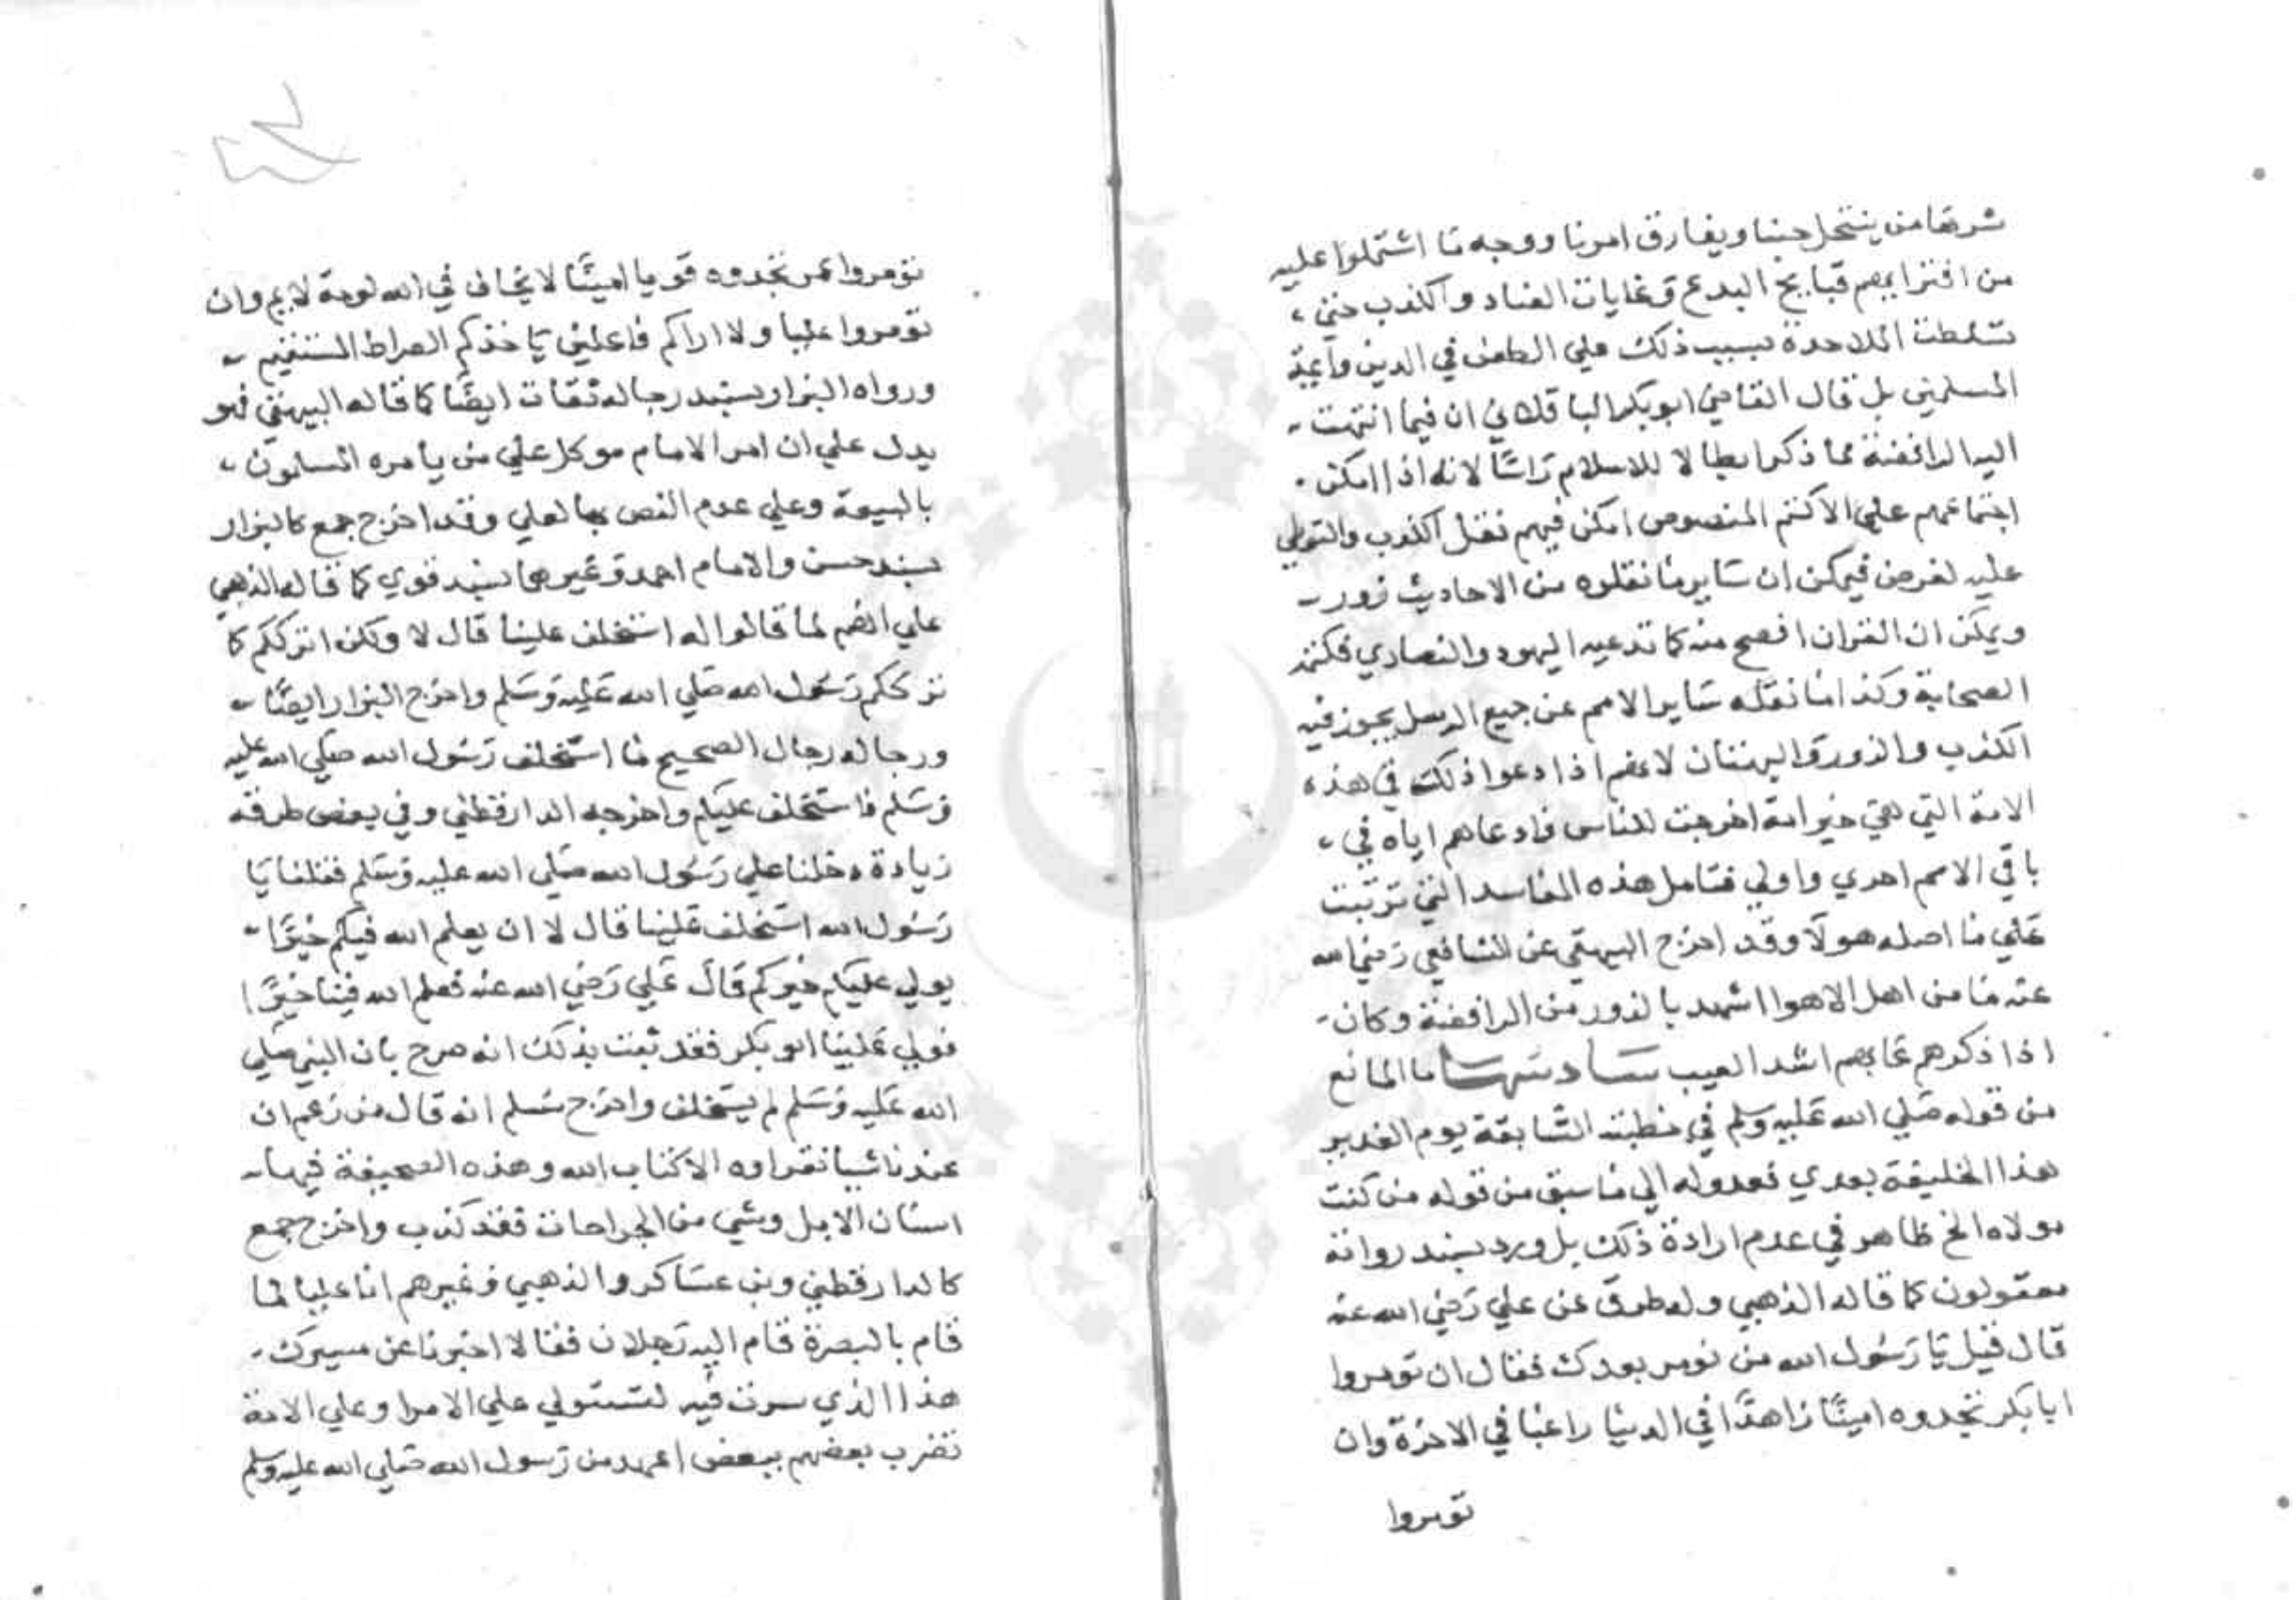 شرها من ينتحل حبنا ويفارق امرنا ووجه ما اشتملوا عليه
من افترايهم قبايح البدع وغايات العناد والكذب حتي
تسلطت الملاحدة بسبب ذلك علي الطعن في الدين وايمة
المسلمين بل قال القاضي ابو بكر الباقلاني ان فيما انتهت
اليه الرافضة مما ذكر ابطالا للاسلام راسا لانه اذا امكن
اجتماعهم علي الاكتم المنصوص امكن فيهم نقل الكذب والتواطي
عليه لغرض فيمكن ان ساير ما نقلوه من الاحاديث زور
ويمكن ان القران افصح منه كما تدعيه اليهود والنصاري فكتمه
الصحابة وكذا ما نقله ساير الامم عن جميع الرسل يجوز فيه
الكذب والزور والبهتان لانهم اذا دعوا ذلك في هذه
الامة التي هي خير امة اخرجت للناس فادعاهم اياه في
باقي الامم احري واولي فتامل هذه المفاسد التي ترتبت
علي ما اصله هولا وقد اخرج البيهقي عن الشافعي رضي الله
عنه ما من اهل الاهوا اشهد بالزور من الرافضة وكان
اذا ذكرهم عابهم اشد العيب سادسها ما المانع
من قوله صلي الله عليه وسلم في خطبته السابقة يوم الغدير
هذا الخليفة بعدي فعدوله الي ما سبق من قوله من كنت
مولاه الخ ظاهر في عدم ارادة ذلك بل ورد بسند رواته
مقبولون كما قاله الذهبي وله طرق عن علي رضي الله عنه
قال قيل يا رسول الله من نومر بعدك فقال ان تومروا
ابا بكر تجدوه امينا زاهدا في الدنيا راغبا في الاخرة وان
تومروا
تومروا عمر تجدوه قويا امينا لا يخاف في الله لومة لايم وان
تومروا عليا ولا اراكم فاعلين ياخذكم الصراط المستقيم
ورواه البزار بسند رجاله ثقات ايضا كما قاله البيهقي فهو
يدل علي ان امر الامام موكل علي من يامره المسلمون
بالبيعة وعلي عدم النص بها لعلي وقد اخرج جمع كالبزار
بسند حسن والامام احمد وغيرهما بسند قوي كما قاله الذهبي
علي انهم لما قالوا له استخلف علينا قال لا ولكن اترككم كما
ترككم رسول الله صلي الله عليه وسلم واخرج البزار ايضا
ورجاله رجال الصحيح ما استخلف رسول الله صلي الله عليه
وسلم فاستخلف عليكم واخرجه الدارقطني وفي بعض طرقه
زيادة دخلنا علي رسول الله صلي الله عليه وسلم فقلنا يا
رسول الله استخلف علينا قال لا ان يعلم الله فيكم خيرا
يولي عليكم خيركم قال علي رضي الله عنه فعلم الله فينا خيرا
فولي علينا ابو بكر فقد ثبت بذلك انه صرح بان النبي صلي
الله عليه وسلم لم يستخلف واخرج مسلم انه قال من زعم ان
عندنا شيا نقراوه الا كتاب الله وهذه الصحيفة فيها
اسنان الابل وشي من الجراحات فقد كذب واخرج جمع
كالدارقطني وبن عساكر والذهبي وغيرهم ان عليا لما
قام بالبصرة قام اليه رجلان فقالا اخبرنا عن مسيرك
هذا الذي سرت فيه لتستولي علي الامرا وعلي الامة
تضرب بعضهم ببعض اعهد من رسول الله صلي الله عليه وسلم